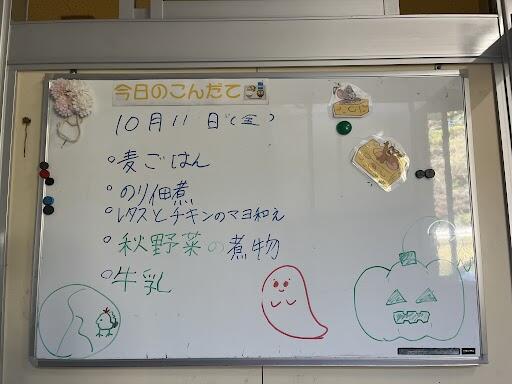 今日のこんだて
10月11日(金)
麦ごはん
のり佃煮
レタスとチキンのマヨ和え
秋野菜の煮物
牛乳